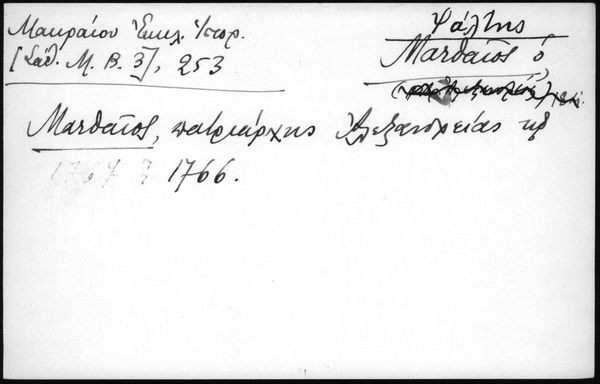 Μακραίου Ἐκκλ. Ἱστορ.
[Σάθ. Μ. Β. 3], 253
Ψάλτης
Ματθαῖος ὁ
Ματθαῖος, πατριάρχης Ἀλεξανδρείας τῷ
1767 ; 1766.